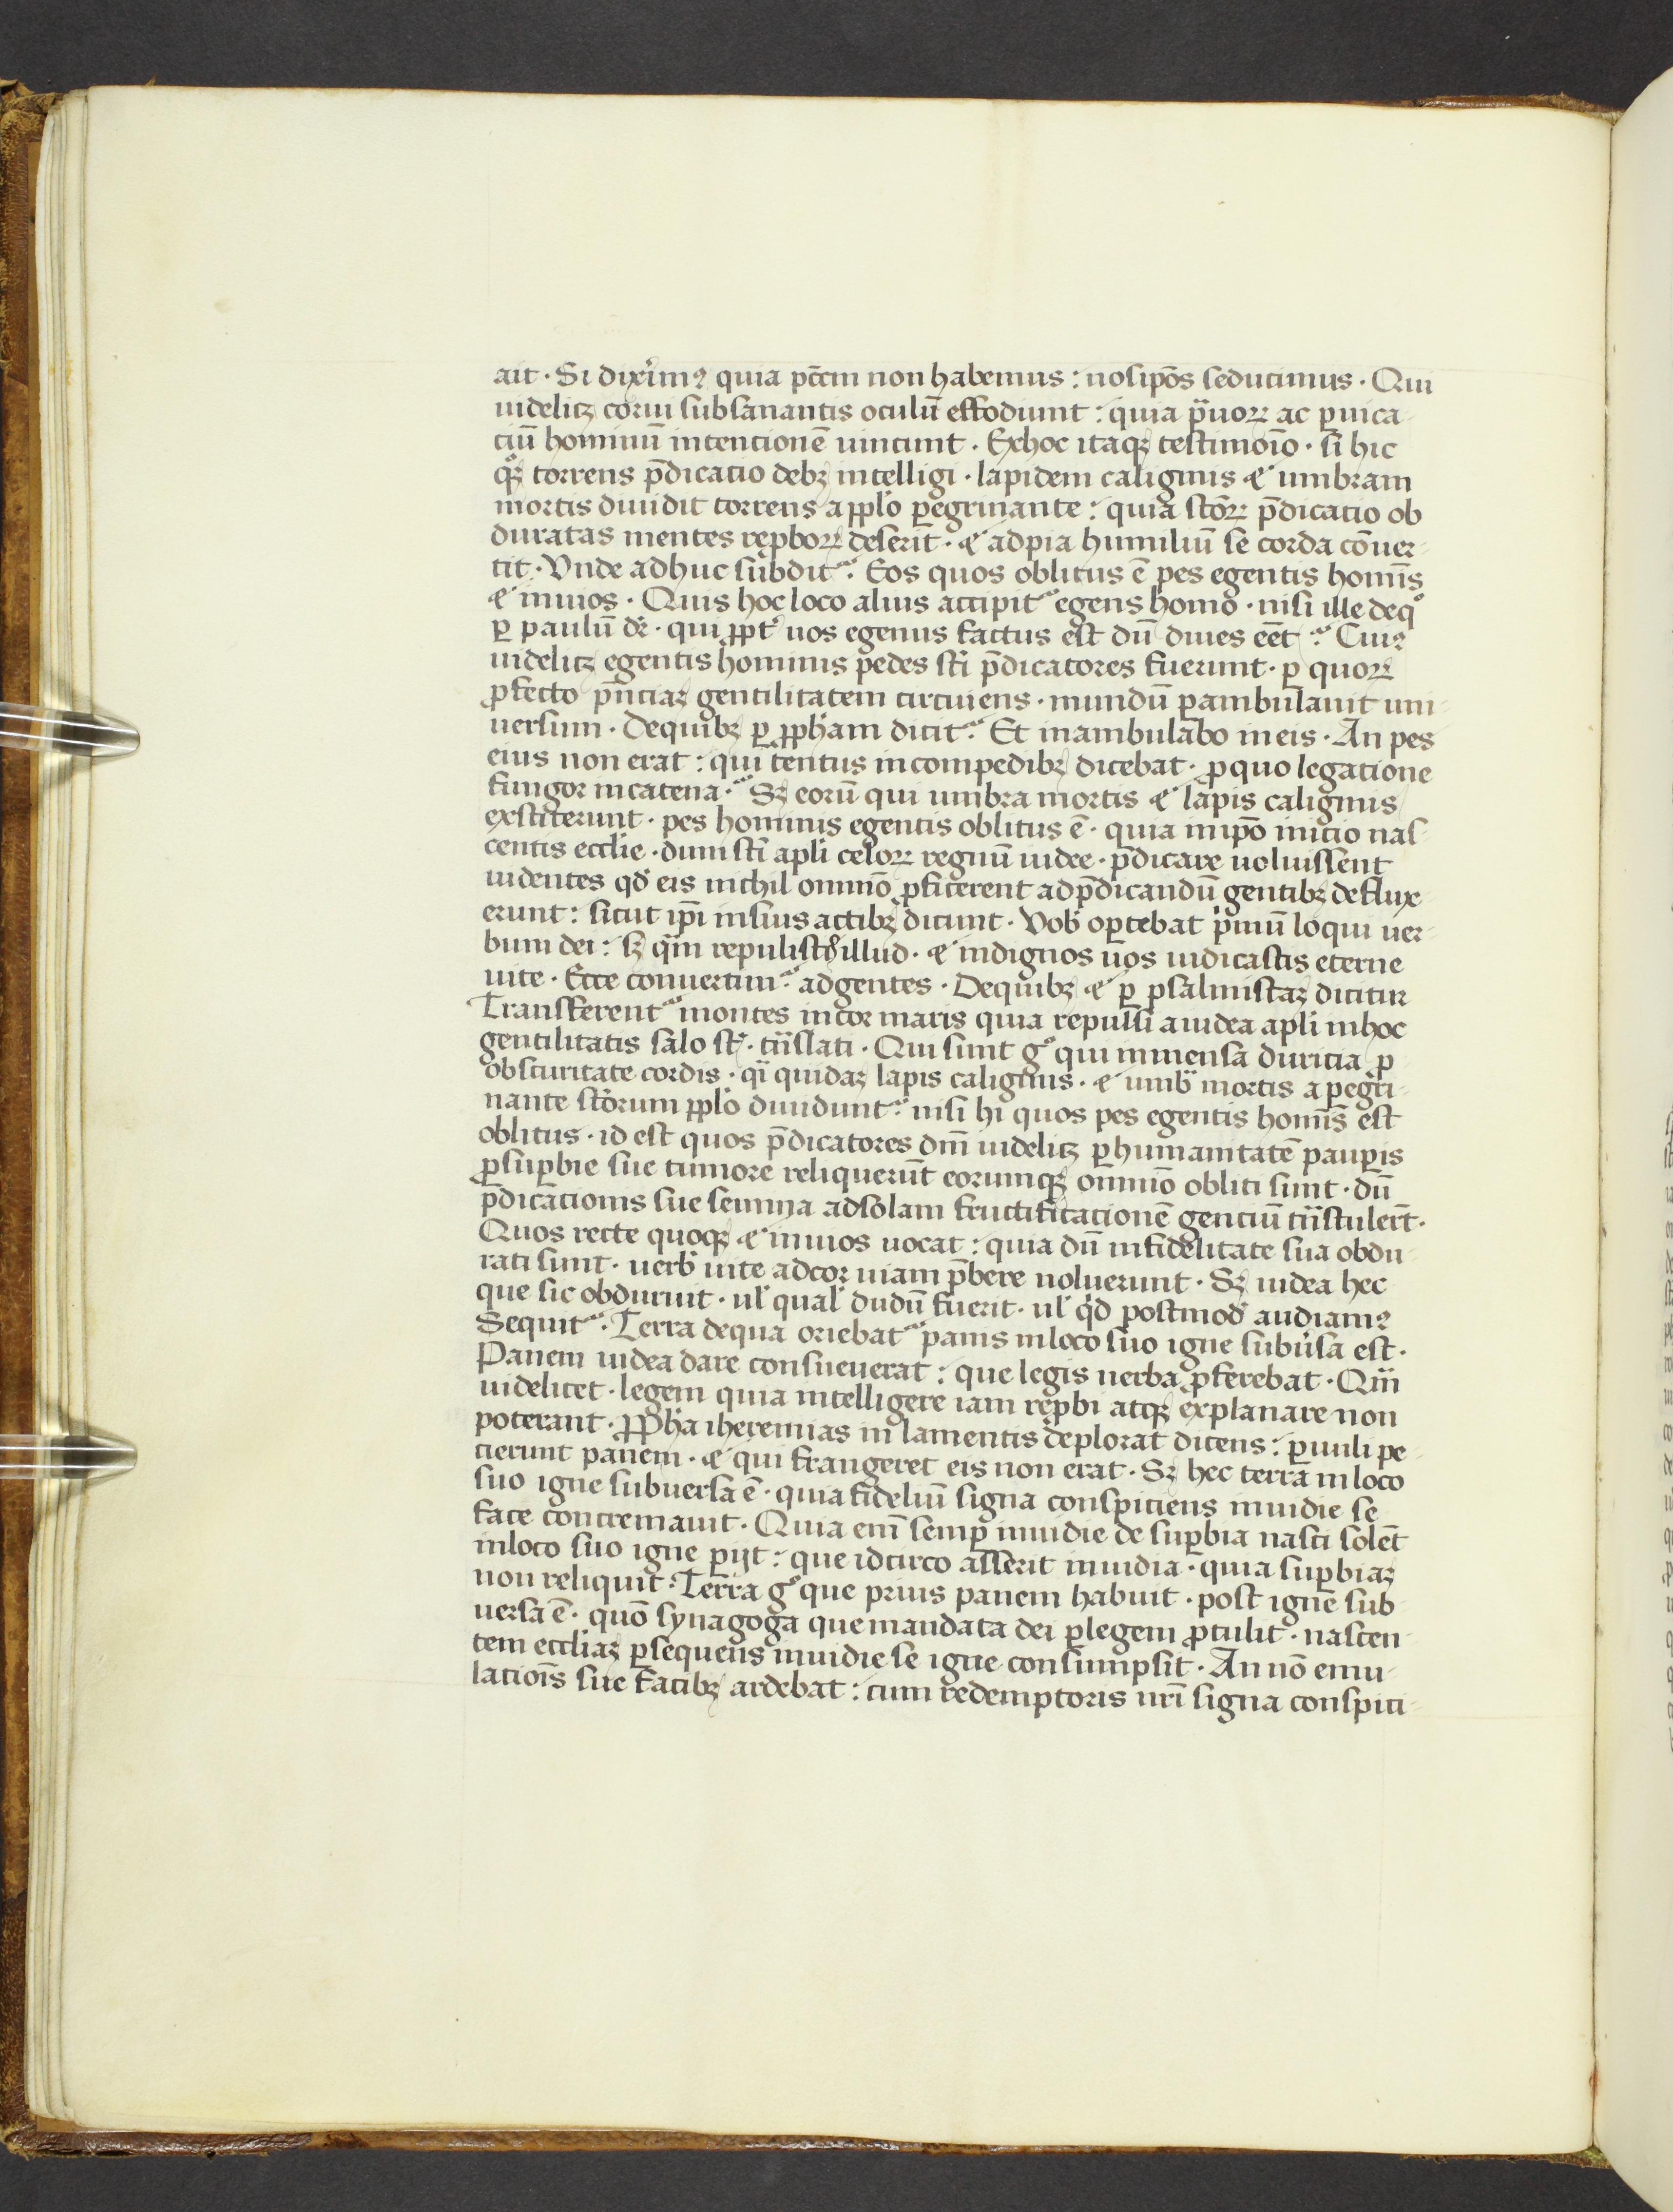 ait · Si dixerimꝰ quia pctm̄ non habemus : nosipōs seducimus · Qui
uidelicꝫ corui subsanantis oculū effodiunt : quia prauorꝝ ac ꝑuica-
ciū hominū intencionē uincunt · Exhoc itaqꝫ testimonio · si hic
qͦqꝫ torrens p̄dicatio debꝫ intelligi · lapidem caliginis ⁊ umbram
mortis diuidit torrens a pplo ꝑegrinante : quia scōrꝝ p̄dicatio ob
duratas mentes reꝓborꝝ deserit · ⁊ adpia humiliū se corda cōuer-
tit · Vnde adhuc subditᷣ · Eos quos oblitus ē pes egentis homīs
⁊ inuios · Quis hoc loco alius accipitᷣ egens homo · nisi ille deqͦ
ꝑ paulū dr̄ · qui ꝓptᷣ uos egenus factus est dū diues eēt · Cuiꝰ
uidelicꝫ egentis hominis pedes sc̄i p̄dicatores fuerunt · ꝑ quorꝝ
ꝓfecto p̄nciaꝫ gentilitatem circuiens · mundū ꝑambulauit uni-
uersum · Dequibꝫ ꝑ ꝓpham dicitᷣ · Et inambulabo ineis · An pes
eius non erat : qui tentus incompedibꝫ dicebat · ꝓquo legatione
fungor incatena · Sꝫ eorū qui umbra mortis ⁊ lapis caliginis
exstiterunt · pes hominis egentis oblitus ē · quia inipō inicio nas-
centis ecclie · dum sc̄i apli celorꝝ regnū iudee · p̄dicare uoluissent
uidentes qd̓ eis nichil omnino ꝓficerent adp̄dicandū gentibꝫ deflux
erunt : sicut ip̄i insuis actibꝫ dicunt · Vob̓ oꝑtebat pͥmū loqui uer-
bum dei : sꝫ qm̄ repulistis illud · ⁊ indignos uos iudicastis eterne
uite · Ecce conuertimᷣ adgentes · Dequibꝫ ⁊ ꝑ psalmistaꝫ dicitur
Transferentᷣ montes incor maris quia repulsi a iudea apli inhoc
gentilitatis salo st̄ · trāslati · Qui sunt gͦ qui inmensa duricia ꝑ
obscuritate cordis · qͣi quidaꝫ lapis caliginis · ⁊ umbͣ mortis a ꝑegri-
nante sctōrum pplo diuiduntᷣ · nisi hi quos pes egentis homīs est
oblitus · id est quos p̄dicatores dn̄i uidelicꝫ ꝑhumanitatē pauꝑis
ꝓsuꝑbie sue tumore reliquerūt eorumqꝫ omnino obliti sunt · dū
p̄dicationis sue semina adsolam fructificacionē genciū trāstulert̄ ·
Quos recte quoqꝫ ⁊ inuios uocat : quia dū infidelitate sua obdu-
rati sunt · uerb̓ uite adcor uiam p̄bere noluerunt · Sꝫ iudea hec
que sic obduruit · ul̓ qual̓ dudū fuerit · ul̓ qͥd postmod̓ audiamꝰ
Sequitᷣ · Terra dequa oriebatᷣ panis inloco suo igne subu̓sa est ·
Panem iudea dare consueuerat : que legis uerba ꝓferebat · Qm̄
uidelicet · legem quia intelligere iam reꝓbi atqꝫ explanare non
poterant · Ꝓpha iheremias in lamentis deplorat dicens : ꝑuuli pe-
tierunt panem · ⁊ qui frangeret eis non erat · Sꝫ hec terra in loco
suo igne subuersa ē · quia fideliū signa conspiciens inuidie se
face concremauit · Quia eni semꝑ inuidie de suꝑbia nasci solēt
inloco suo igne ꝑijt : que idcirco asserit inuidia · quia suꝑbiaꝫ
non reliquit · Terra gͦ que prius panem habuit · post ignē sub-
uersa ē · quō synagoga que mandata dei ꝑlegem ꝓtulit · nascen-
tem eccliaꝫ ꝑsequens inuidie se igne consumpsit · An nō emu-
lationis sue facibꝫ ardebat : cum redemptoris nrī signa conspici-